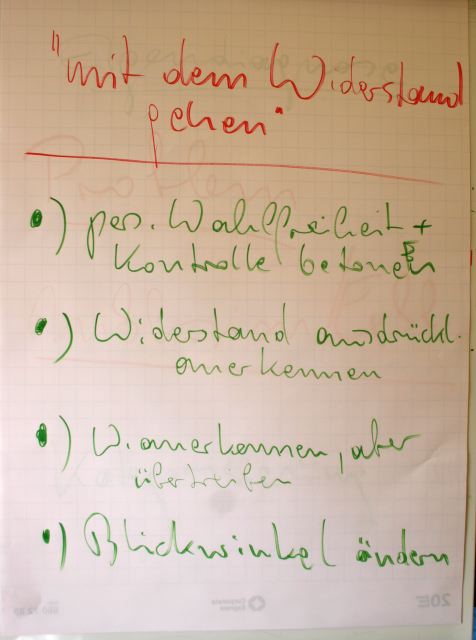 "mit dem Widerstand
gehen"
•) pers. Wahlfreiheit +
Kontrolle betonen
•) Widerstand ausdrückl.
anerkennen
•) W. anerkennen, aber
übertreiben
•) Blickwinkel ändern
20E
Corporate
Express